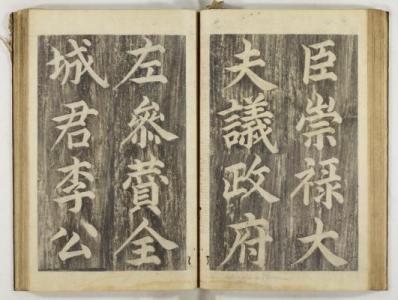 臣崇祿大
夫議政府
左叅賛全
城君李公